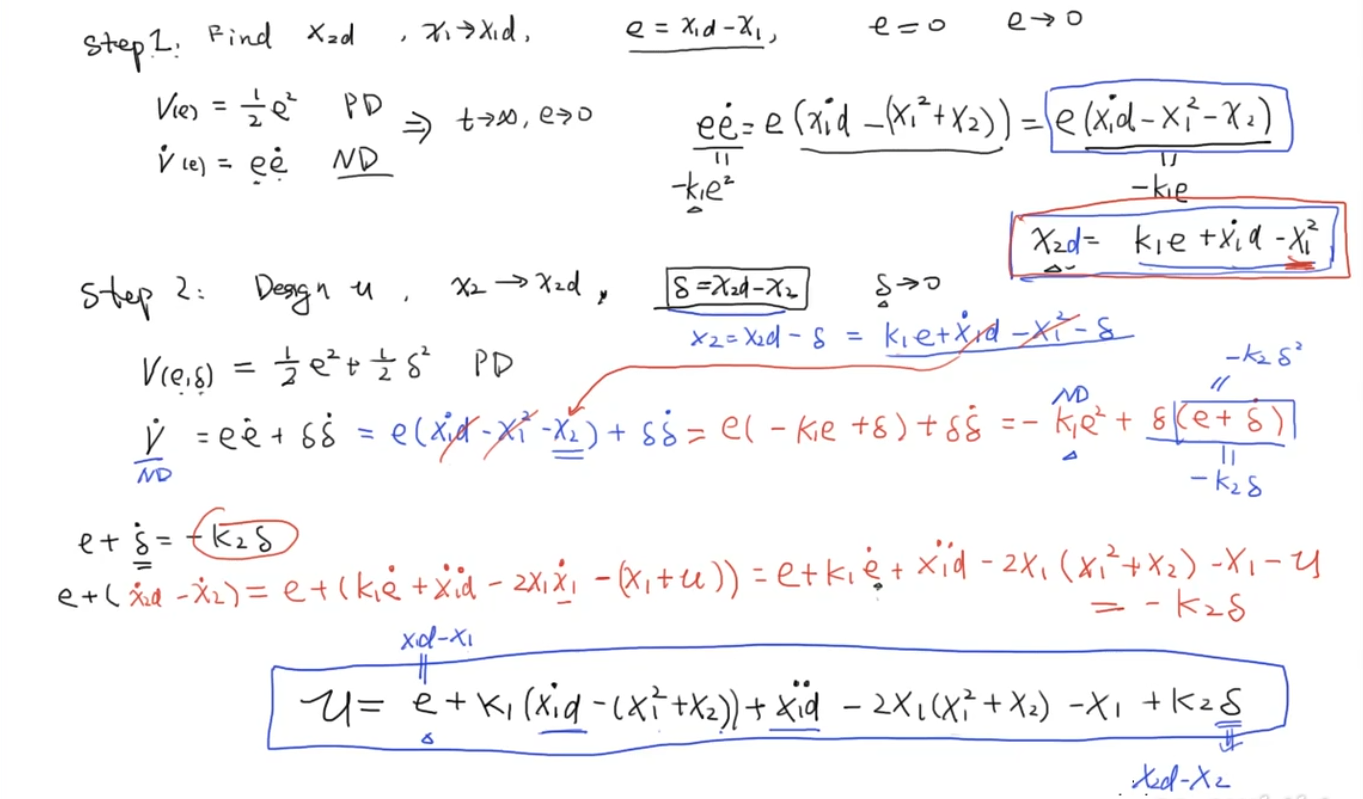 Step 1: Find x₂d , x₁→x₁d, e = x₁d-x₁, e=0 e→0
V(e) = ½e² PD ⇒ t→∞, e→0
V̇(e) = eė ND
eė = e(ẋ₁d-(x₁²+x₂)) = e(ẋ₁d-x₁²-x₂)
= -k₁e²
= -k₁e
x₂d = k₁e+ẋ₁d-x₁²
Step 2: Design u, x₂→x₂d, δ=x₂d-x₂ δ→0
x₂=x₂d-δ = k₁e+ẋ₁d-x₁²-δ
V(e,δ) = ½e²+½δ² PD
-k₂δ²
=
ND
V̇ = eė+δδ̇ = e(ẋ₁d-x₁²-x₂)+δδ̇ = e(-k₁e+δ)+δδ̇ = -k₁e²+δ(e+δ̇)
ND
= -k₂δ
e+δ̇ = -k₂δ
e+(ẋ₂d-ẋ₂) = e+(k₁ė+ẍ₁d-2x₁ẋ₁-(x₁+u)) = e+k₁ė+ẍ₁d-2x₁(x₁²+x₂)-x₁-u
= -k₂δ
x₁d-x₁
u = e+k₁(ẋ₁d-(x₁²+x₂))+ẍ₁d-2x₁(x₁²+x₂)-x₁+k₂δ
x₂d-x₂